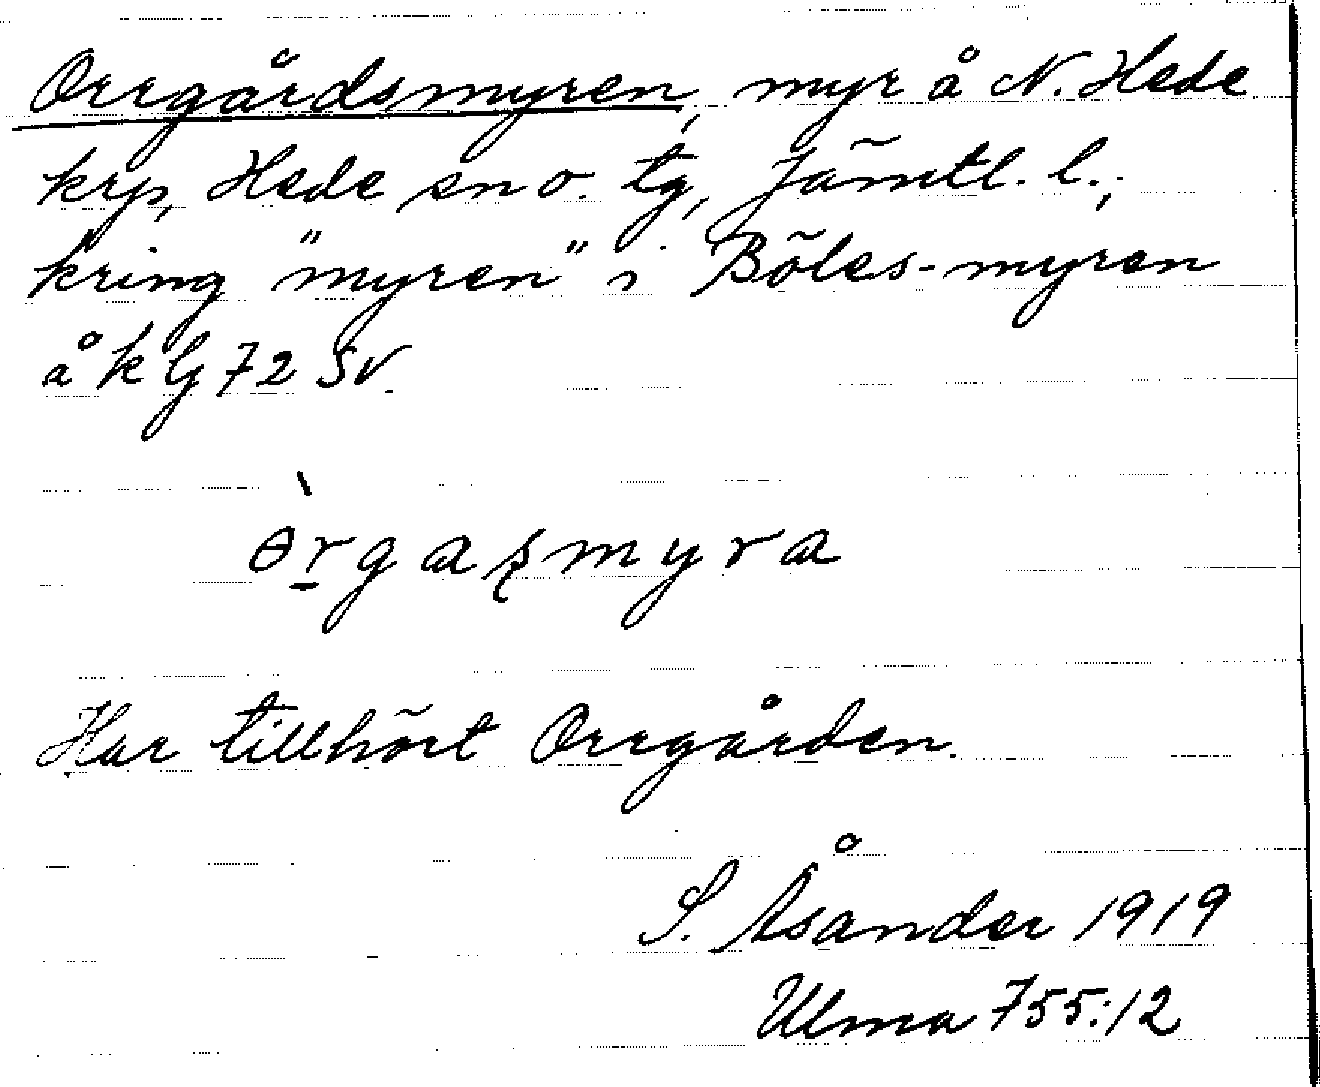 Orrgårdsmyren, myr å N. Hede
krp, Hede sn o. tg, Jämtl. l.;
kring "myren" i Böles-myren
å k bl 72 SV.
òrgaʂmyra
Har tillhört Orrgården.
S. Åsander 1919
Ulma 755:12